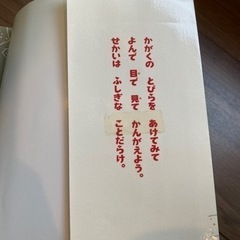 かがくの とびらを あけてみて
よんで 目で 見て かんがえよう。
せかいは ふしぎな ことだらけ。